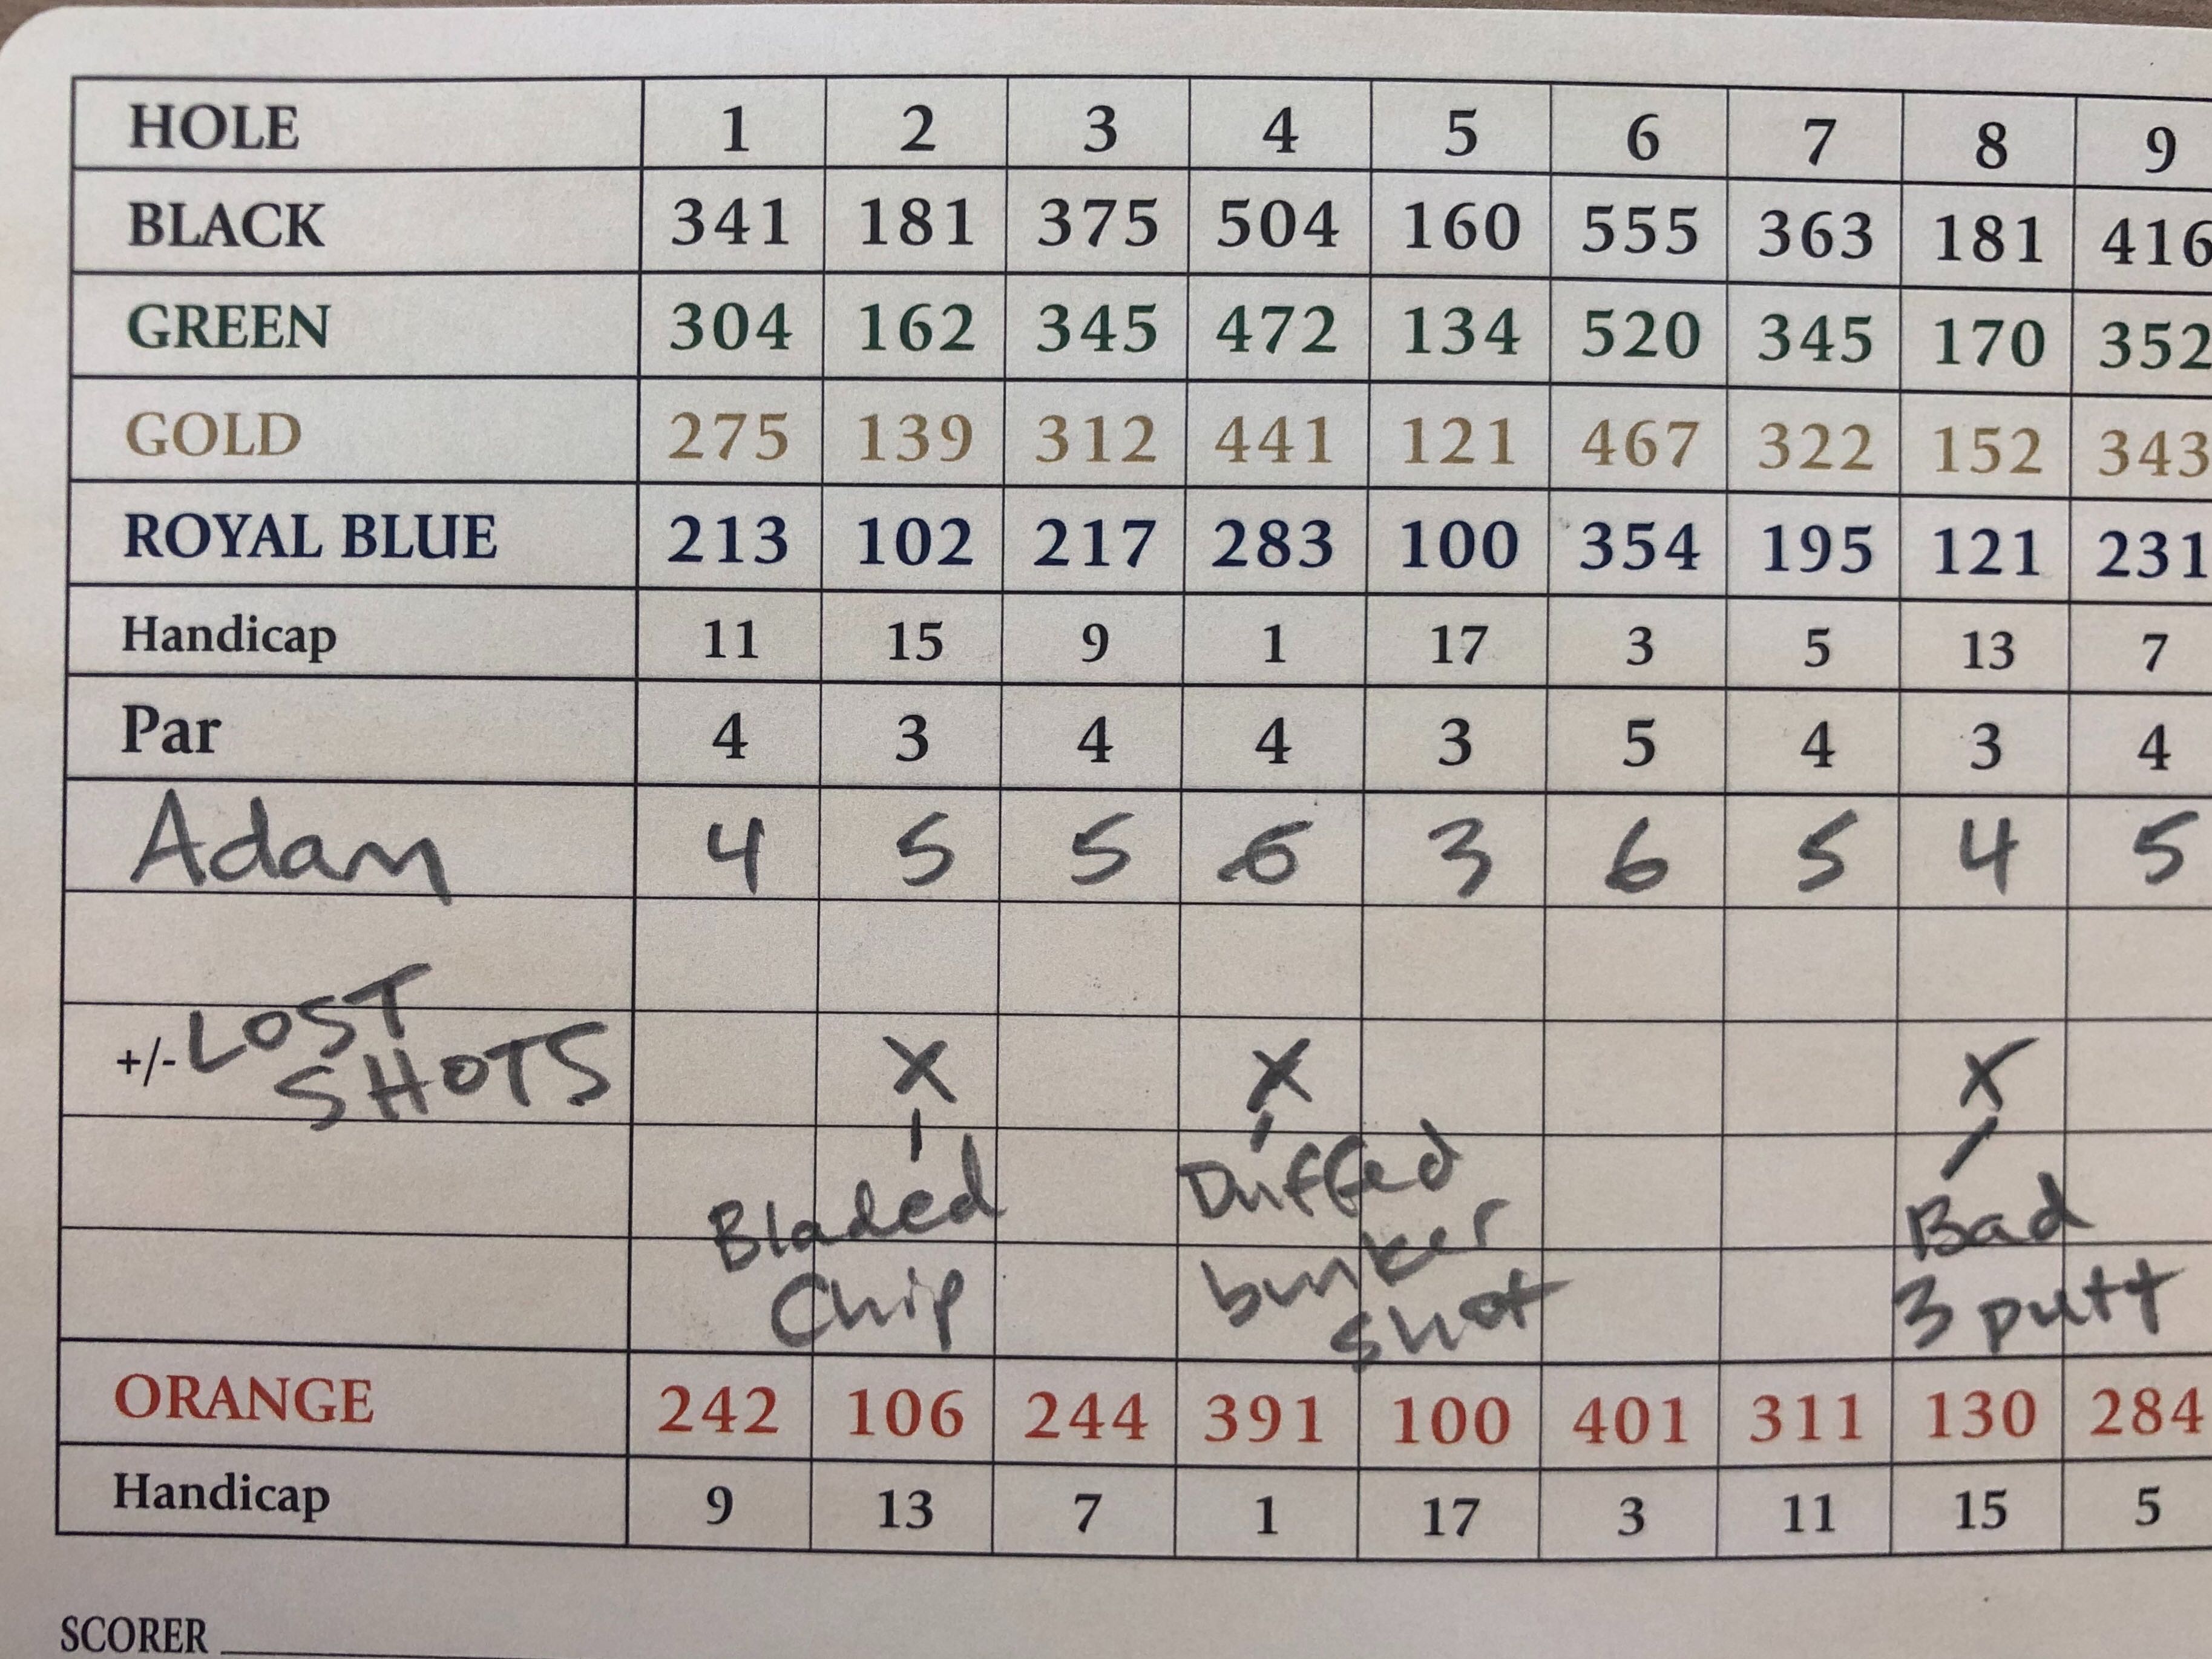 HOLE 1 2 3 4 5 6 7 8 9
BLACK 341 181 375 504 160 555 363 181 416
GREEN 304 162 345 472 134 520 345 170 352
GOLD 275 139 312 441 121 467 322 152 343
ROYAL BLUE 213 102 217 283 100 354 195 121 231
Handicap 11 15 9 1 17 3 5 13 7
Par 4 3 4 4 3 5 4 3 4
Adam 4 5 5 6 3 6 5 4 5
+/- LOST SHOTS X X X
Bladed Chip
Duffed bunker shot
Bad 3 putt
ORANGE 242 106 244 391 100 401 311 130 284
Handicap 9 13 7 1 17 3 11 15 5
SCORER